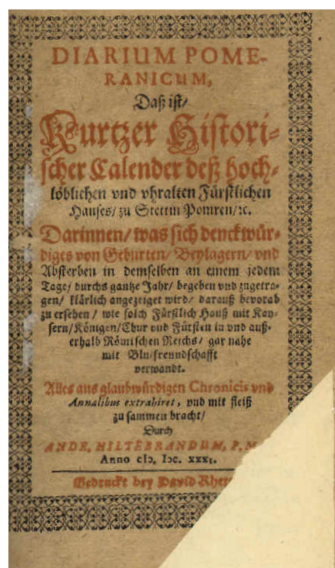 DIARIUM POME-
RANICUM,
Daß ist/
Kurtzer Histori-
scher Calender deß hoch-
löblichen vnd vhralten Fürstlichen
Hauses/ zu Stettin Pomren/ ꝛc.
Darinnen/ was sich denckwür-
diges von Geburten/ Beylagern/ vnd
Absterben in demselben an einem jedem
Tage/ durchs gantze Jahr/ begeben vnd zugetra-
gen/ klärlich angezeiget wird/ darauß bevorab
zu ersehen/ wie solch Fürstlich Hauß mit Kay-
sern/ Königen/ Chur vnd Fürsten in vnd auß-
erhalb Römischen Reichs/ gar nahe
mit Blutfreundschafft
verwandt.
Alles aus glaubwürdigen Chronicis vnd
Annalibus extrahiret, vnd mit fleiß
zu sammen bracht/
Durch
ANDR. HILTEBRANDUM, P. M.
Anno cIɔ, Iɔc. xxxj.
Gedruckt bey David